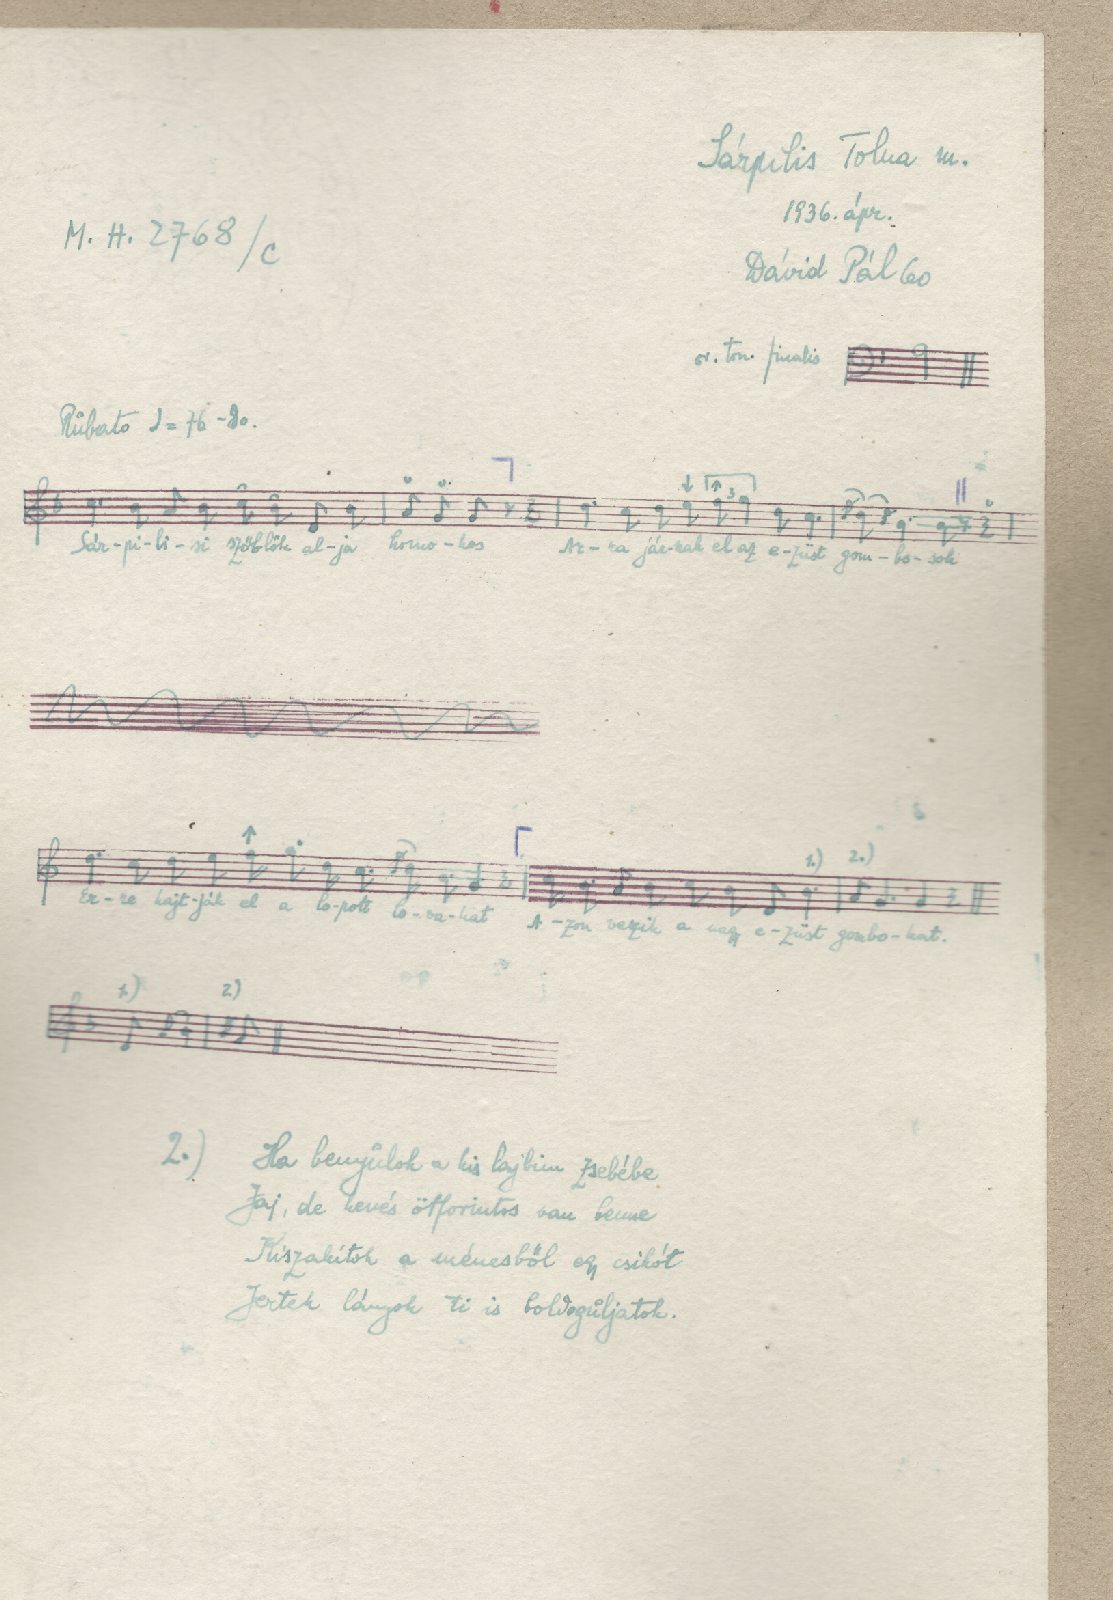 Sárpilis Tolna m.
1936. ápr.
M. H. 2768/c
Dávid Pál 60
or. ton. finalis
Rubato ♩= 76 -80.
3
Sár-pi-li-si szőllők al-ja homo-kos Ar-ra jár-nak el az e-züst gom-bo-sok
1.) 2.)
Er-re hajt-ják el a lo-pott lo-va-kat A-zon veszik a nagy e-züst gombo-kat.
1.) 2.)
2.) Ha benyúlok a kis lajbim zsebébe
Jaj, de kevés ötforintos van benne
Kiszakítok a ménesből egy csikót
Jertek lányok ti is boldoguljatok.